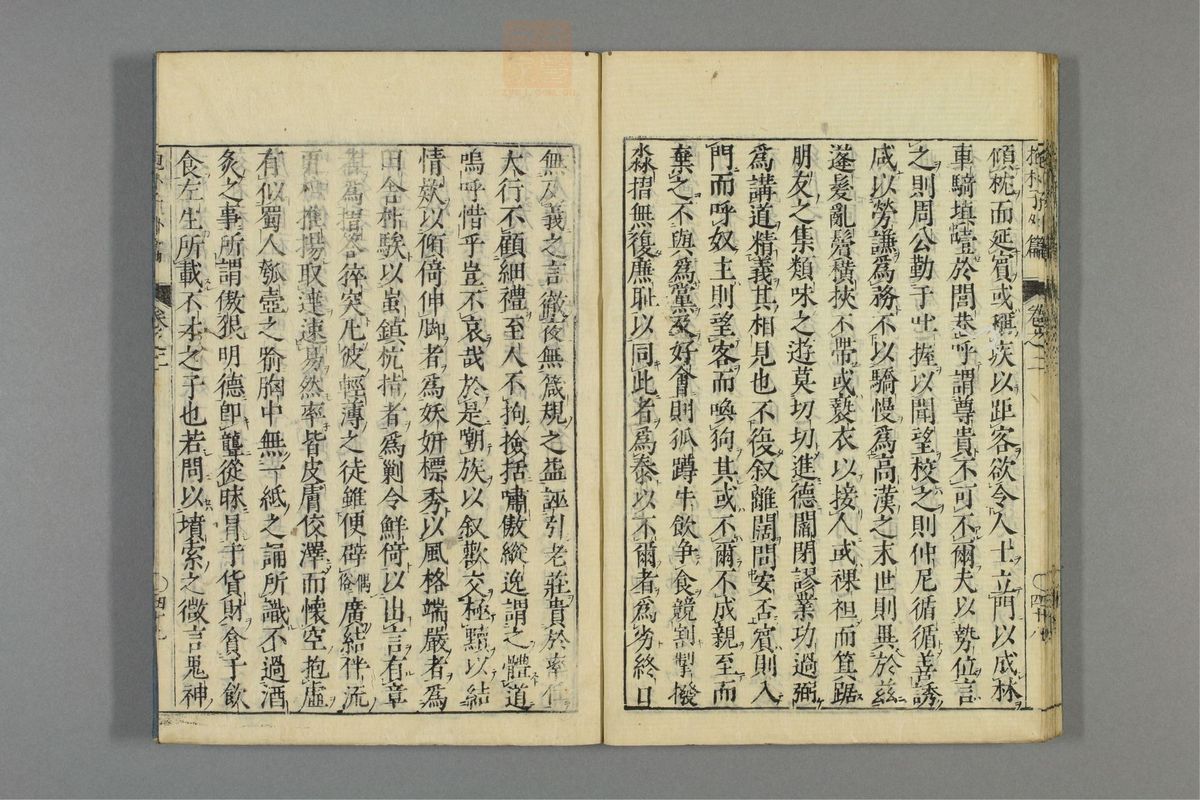 抱朴子外篇 卷之二 四十八
傾枕而延賓或稱疾以距客欲令人士立門以成林
車騎填噎於閭巷呼謂尊貴不可不爾夫以勢位言
之則周公勤于吐握以聞望校之則仲尼循循善誘
咸以勞謙爲務不以驕慢爲高漢之末世則異於茲
蓬髮亂鬢橫挾不帶或褻衣以接人或裸袒而箕踞
朋友之集類味之遊莫切切進德誾誾謬業功過弼
爲講道精義其相見也不復叙離闊問安否賓則入
門而呼奴主則望客而喚狗其或不爾不成親至而
棄之不與爲黨及好會則狐蹲牛飲争食競割掣撥
淼摺無復廉耻以同此者爲泰以不爾者爲劣終日
無及義之言徹夜無箴規之益誣引老莊貴於率任
大行不顧細禮至人不拘撿括嘯傲縱逸謂之體道
嗚呼惜乎豈不哀哉於是嘲族以叙歡交極黷以結
情欵以傾倚伸脚者爲妖姸標秀以風格端嚴者爲
田舍朴騃以蚩鎮抗指者爲勦令鮮倚以出言有章
爲摺答猝突凡彼輕薄之徒雖便辟偶俗廣結伴流
更 推揚取達速易然率皆皮膚佼澤而懷空抱虛
有似蜀人瓠壺之喻胸中無一紙之誦所識不過酒
炙之事所謂傲狠明德卽聾從昧冒于貨財貪于飮
食左生所載不才之子也若問以墳索之微言鬼神
抱朴子外篇 卷之二 四十九